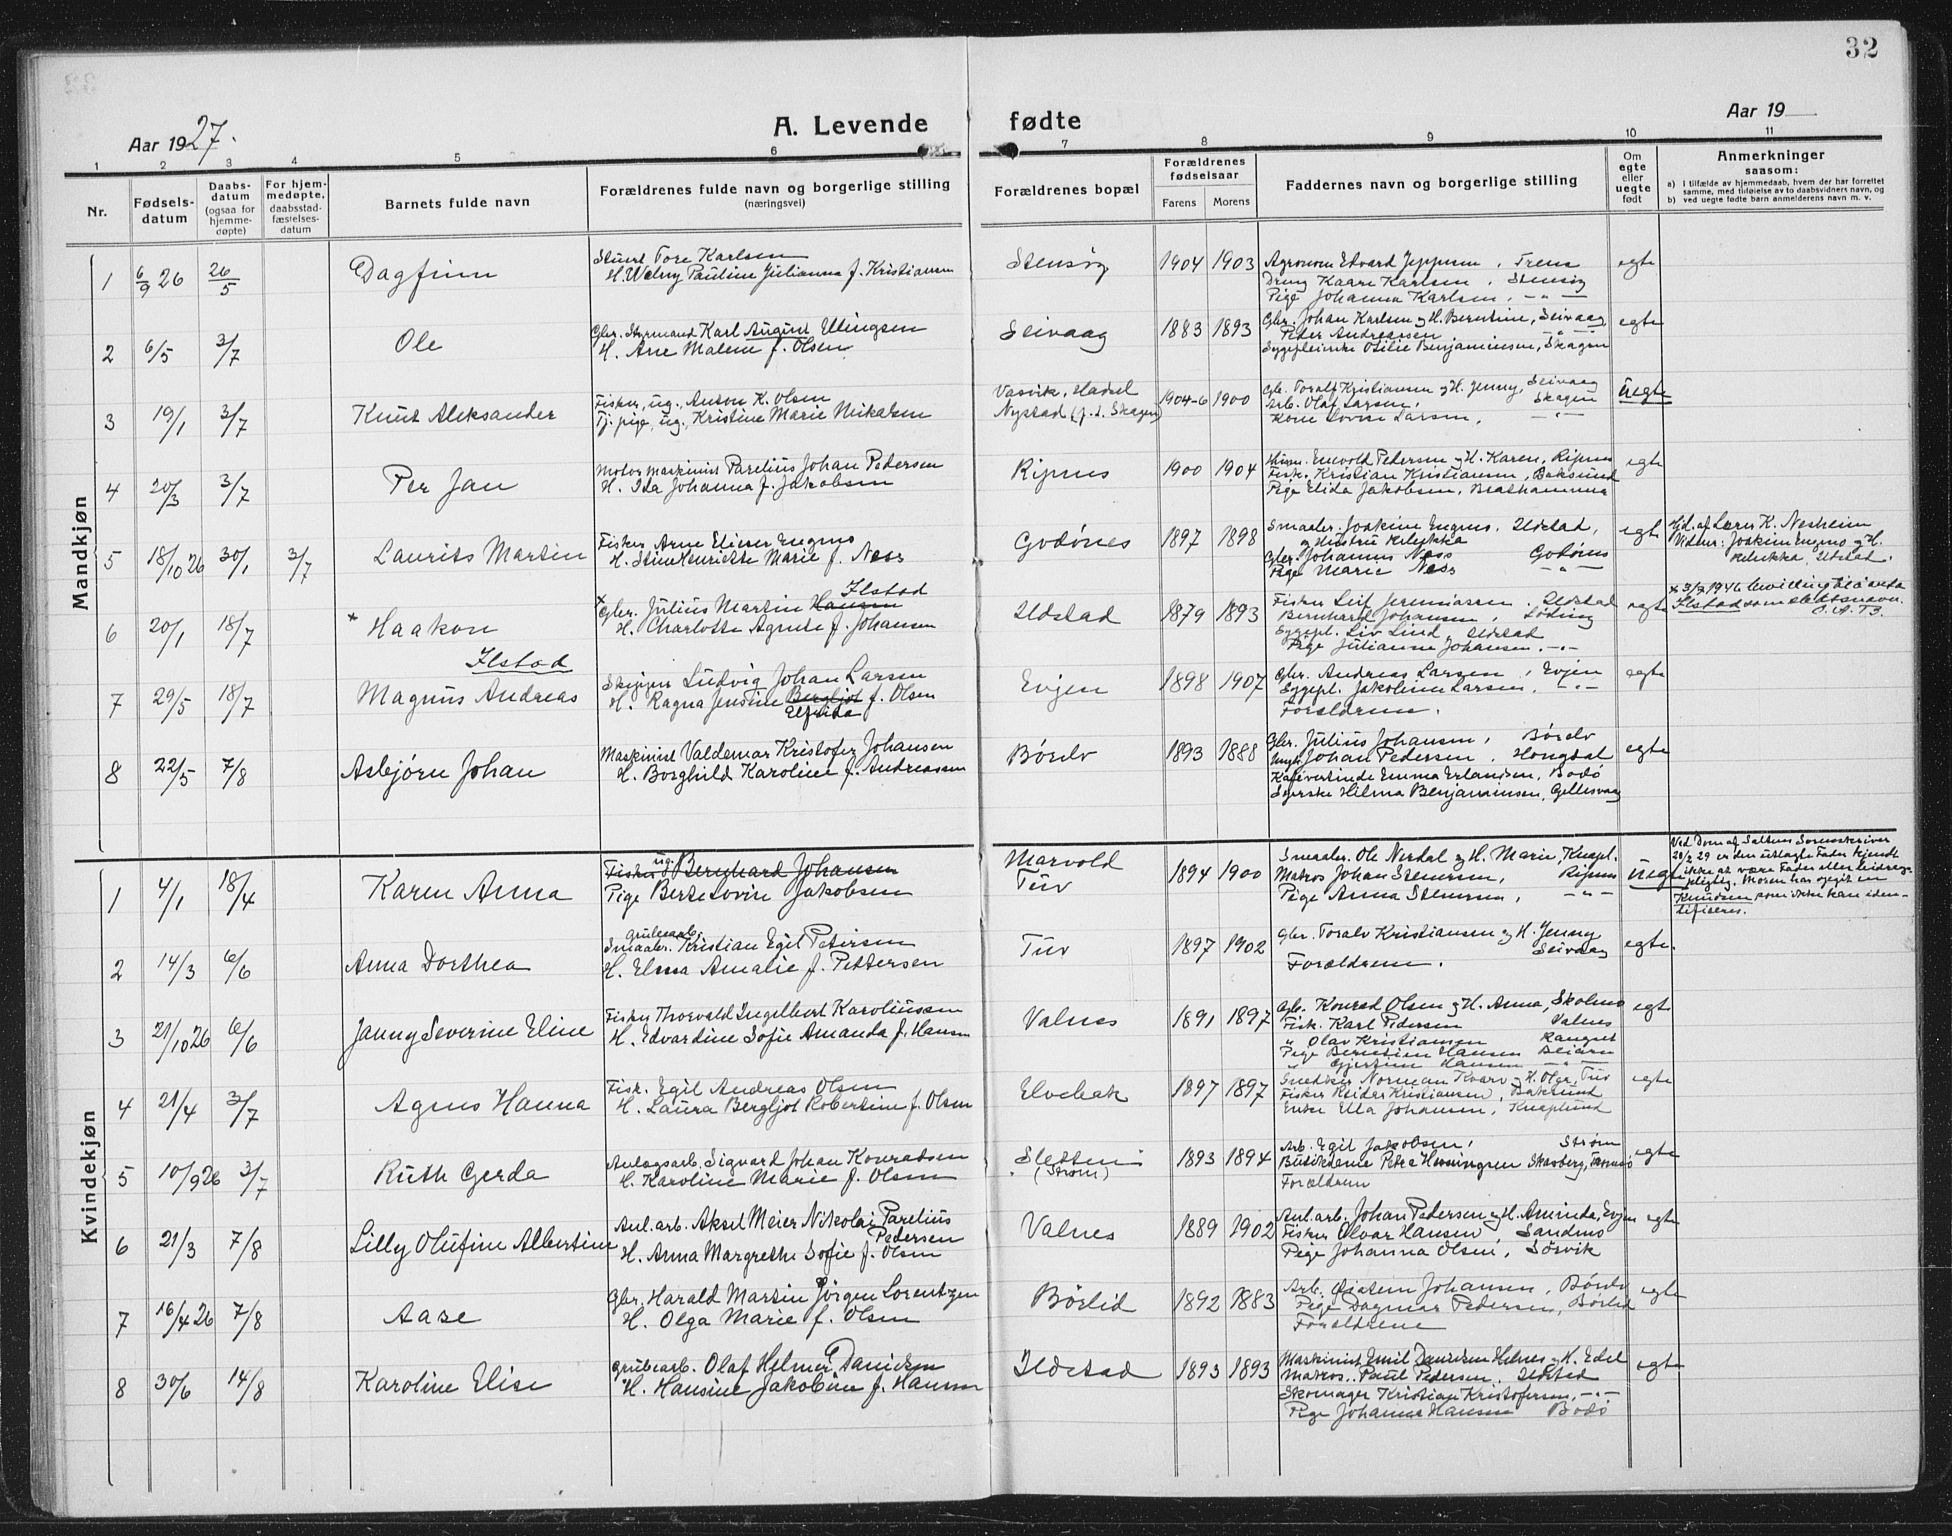 32
Aar 1927.
A. Levende fødte
Aar 19
1 2 3 4 5 6 7 8 9 10 11
Nr.
Fødsels-
datum
Daabs-
datum
(ogsaa for
hjemme-
døpte)
For hjem-
medøpte,
daabsstad-
fæstelses-
datum
Barnets fulde navn
Forældrenes fulde navn og borgerlige stilling
(næringsvei)
Forældrenes bopæl
Forældrenes
fødselsaar
Farens Morens
Faddernes navn og borgerlige stilling
Om
egte
eller
uegte
født
Anmerkninger
saasom:
a) i tilfælde av hjemmedaab, hvem der har forrettet
samme, med tilføielse av to daabsvidners navn, og
b) ved uegte fødte barn anmelderens navn m. v.
Mandkjøn
1 6/9 26 26/5 Dagfinn
Stuert Tore Karlsen
H. Welny Pauline Julianna f. Kristiansen
Stensøg 1904 1903
Agronom Edvard Jeppesen, Trens
Dreng Kaare Karlsen, Stensøg
Pige Johanna Karlsen, - " -
egte
2 6/5 3/7 Ole
Gbr. Styrmand Karl August Ellingsen
H. Arne Malene f. Olsen
Seivaag 1883 1893
Gbr. Johan Karlsen og H. Berntine, Seivaag
Peter Andreassen - " -
Sygepleierske Otilie Benjaminsen, Skagen
egte
3 19/1 3/7 Knut Aleksander
Fisker, ug., Anton K. Olsen
Tj. pige, ug., Kristine Marie Nikalsen
Vasvik, Hadsel
Nystad (f. t. Skagen) 1904-6 1900
Gbr. Toralf Kristiansen og H. Jenny, Seivaag
Arb. Olaf Larsen, Skagen
Kone Lovise Larsen, - " -
uegte
4 20/3 3/7 Per Jan
Motormaskinist Parelius Johan Pedersen
H. Ida Johanna f. Jakobsen
Ripnes 1900 1904
Enevold Pedersen og H. Karen, Ripnes
Fisk. Kristian Kristiansen, Baksund
Pige Elida Jakobsen, Brathammer
egte
5 18/10 26 30/1 3/7 Laurits Martin
Fisker Arne Elieser Engmo
H. Stine Henriette Marie f. Ness
Godønes 1897 1898
Smaabr. Joakim Engmo, Ildstad,
og Hustru Rebekka
Gbr. Johannes Ness Godønes
Pige Marie Ness - " -
egte
Hjd. af Lærer K. Nesheim
Vidner: Joakim Engmo og H.
Rebekka, Ildstad.
6 20/1 18/7 * Haakon
Ilstad
Ilstad
x Gbr. Julius Martin Hansen
H. Charlotte Agnete f. Johansen
Ildstad 1879 1893
Fisker Leif Jeremiassen, Ildstad
Bernhard Johansen, Løding
Sygepl. Liv Lind, Ildstad
Pige Julianne Johansen, - " -
egte
x 3/7 1946 bevilling til å anta
Ilstad som slektsnavn.
7 29/5 18/7 Magnus Andreas
Skipper Ludvig Johan Larsen
H. Ragna Jensine Bergljot f. Olsen
Elfrida
Evjen 1898 1907
Gbr. Andreas Larsen, Evjen
Sygepl. Jakobine Larsen, - " -
Forældrene.
egte
8 22/5 7/8 Asbjørn Johan
Maskinist Valdemar Kristofer Johansen
H. Borghild Karoline f. Andreassen
Børelv 1893 1888
Gbr. Julius Johansen, Børelv
Ungk. Johan Pedersen, Hongdal
Kafévertinde Emma Erlandsen, Bodø
Syerske Hilma Benjaminsen, Gillesvaag
egte
Kvindekjøn
1 4/1 18/4 Karen Anna
Fisker ug. Bernhard Johansen
Pige Berte Lovise Jakobsen
Marvold
Tuv 1894 1900
Smaabr. Ole Nerdal og H. Marie, Knapl.
Matros Johan Stensen, Ripnes
Pige Anna Stensen, - " -
uegte
Ved Dom af Saltens Sorenskriver
20/2 29 er den utlagte Fader kjendt
ikke at være Fader eller bidrags-
pligtig. Moren har opgit en
Knudsen som ikke kan iden-
tifiseres.
2 14/3 6/6 Anna Dorthea
grubearb.
Smaabr. Kristian Egil Petersen
H. Elma Amalie f. Pettersen
Tuv 1897 1902
Gbr. Toralv Kristiansen og H. Jenny
Seivaag
Forældrene.
egte.
3 21/10 26 6/6 Janny Severine Eline
Fisker Thorvald Ingelbert Karoliussen
H. Edvardine Sofie Amanda f. Hansen
Valnes 1891 1897
Gbr. Konrad Olsen og H. Anna, Skolmo
Fisk. Karl Pedersen Valnes
" Olav Kristiansen
Pige Berntine Hansen Beiarn
" Gjertine Hansen - " -
egte
4 21/4 3/7 Agnes Hanna
Fisk. Egil Andreas Olsen
H. Laura Bergljot Robertine f. Olsen
Elvebak 1897 1897
Snedker Norman Kvarv og H. Olga, Tuv
Fisker Reidar Kristiansen, Baksund
Enke Ella Johansen, Knaplund
egte
5 10/9 26 3/7 Ruth Gerda
Anlægsarb. Sigvard Johan Konradsen
H. Karoline Marie f. Olsen
Sletten
(Strøm) 1893 1894
Arb. Egil Jakobsen, Strøm
Butikdame Petra Henningsen Skavberg, Tromsø
Forældrene
egte
6 21/3 7/8 Lilly Olufine Albertine
Anl.arb. Aksel Meier Nikolai Parelius
Pedersen
H. Anna Margrethe Sofie f. Olsen
Valnes 1889 1902
Anl.arb. Johan Pedersen og H. Aminda, Evjen
Fisker Olvar Hansen, Sandmo
Pige Johanna Olsen, Sørvik
egte
7 16/4 26 7/8 Aase
Gbr. Harald Martin Jørgen Lorentzen
H. Olga Marie f. Olsen
Børlid 1892 1883
Arb. Øistein Johansen, Børelv
Pige Dagmar Pedersen, Børlid
Forældrene
egte
8 30/6 14/8 Karoline Elise
Grubearb. Olaf Helmer Danielsen
H. Hansine Jakobine f. Hansen
Ildstad 1893 1893
Maskinist Emil Danielsen Helnes og H. Edel
Matros. Paul Pedersen, Ildstad
Skomager Kristian Kristofersen, - " -
Pige Johanna Hansen Bodø
egte